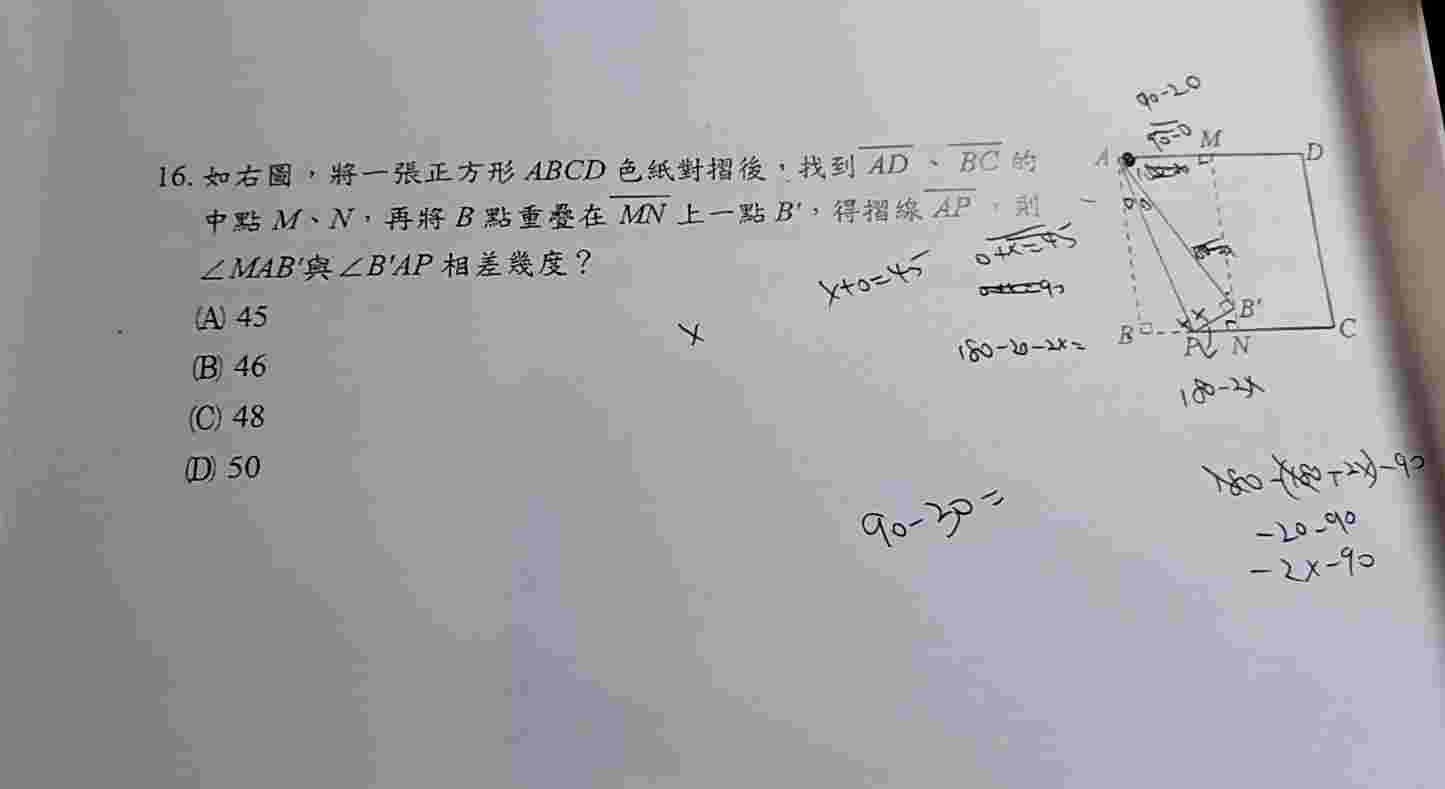 16. 如右圖，將一張正方形 ABCD 色紙對摺後，找到 AD、BC 的
中點 M、N，再將 B 點重疊在 MN 上一點 B'，得摺線 AP，則
∠MAB'與∠B'AP 相差幾度？
(A) 45
(B) 46
(C) 48
(D) 50
90-20
A
M
D
x+0=45
0+x=45
180-20-2x=
x
B
P
N
B'
C
180-2x
90-30=
-20-90
-2x-90